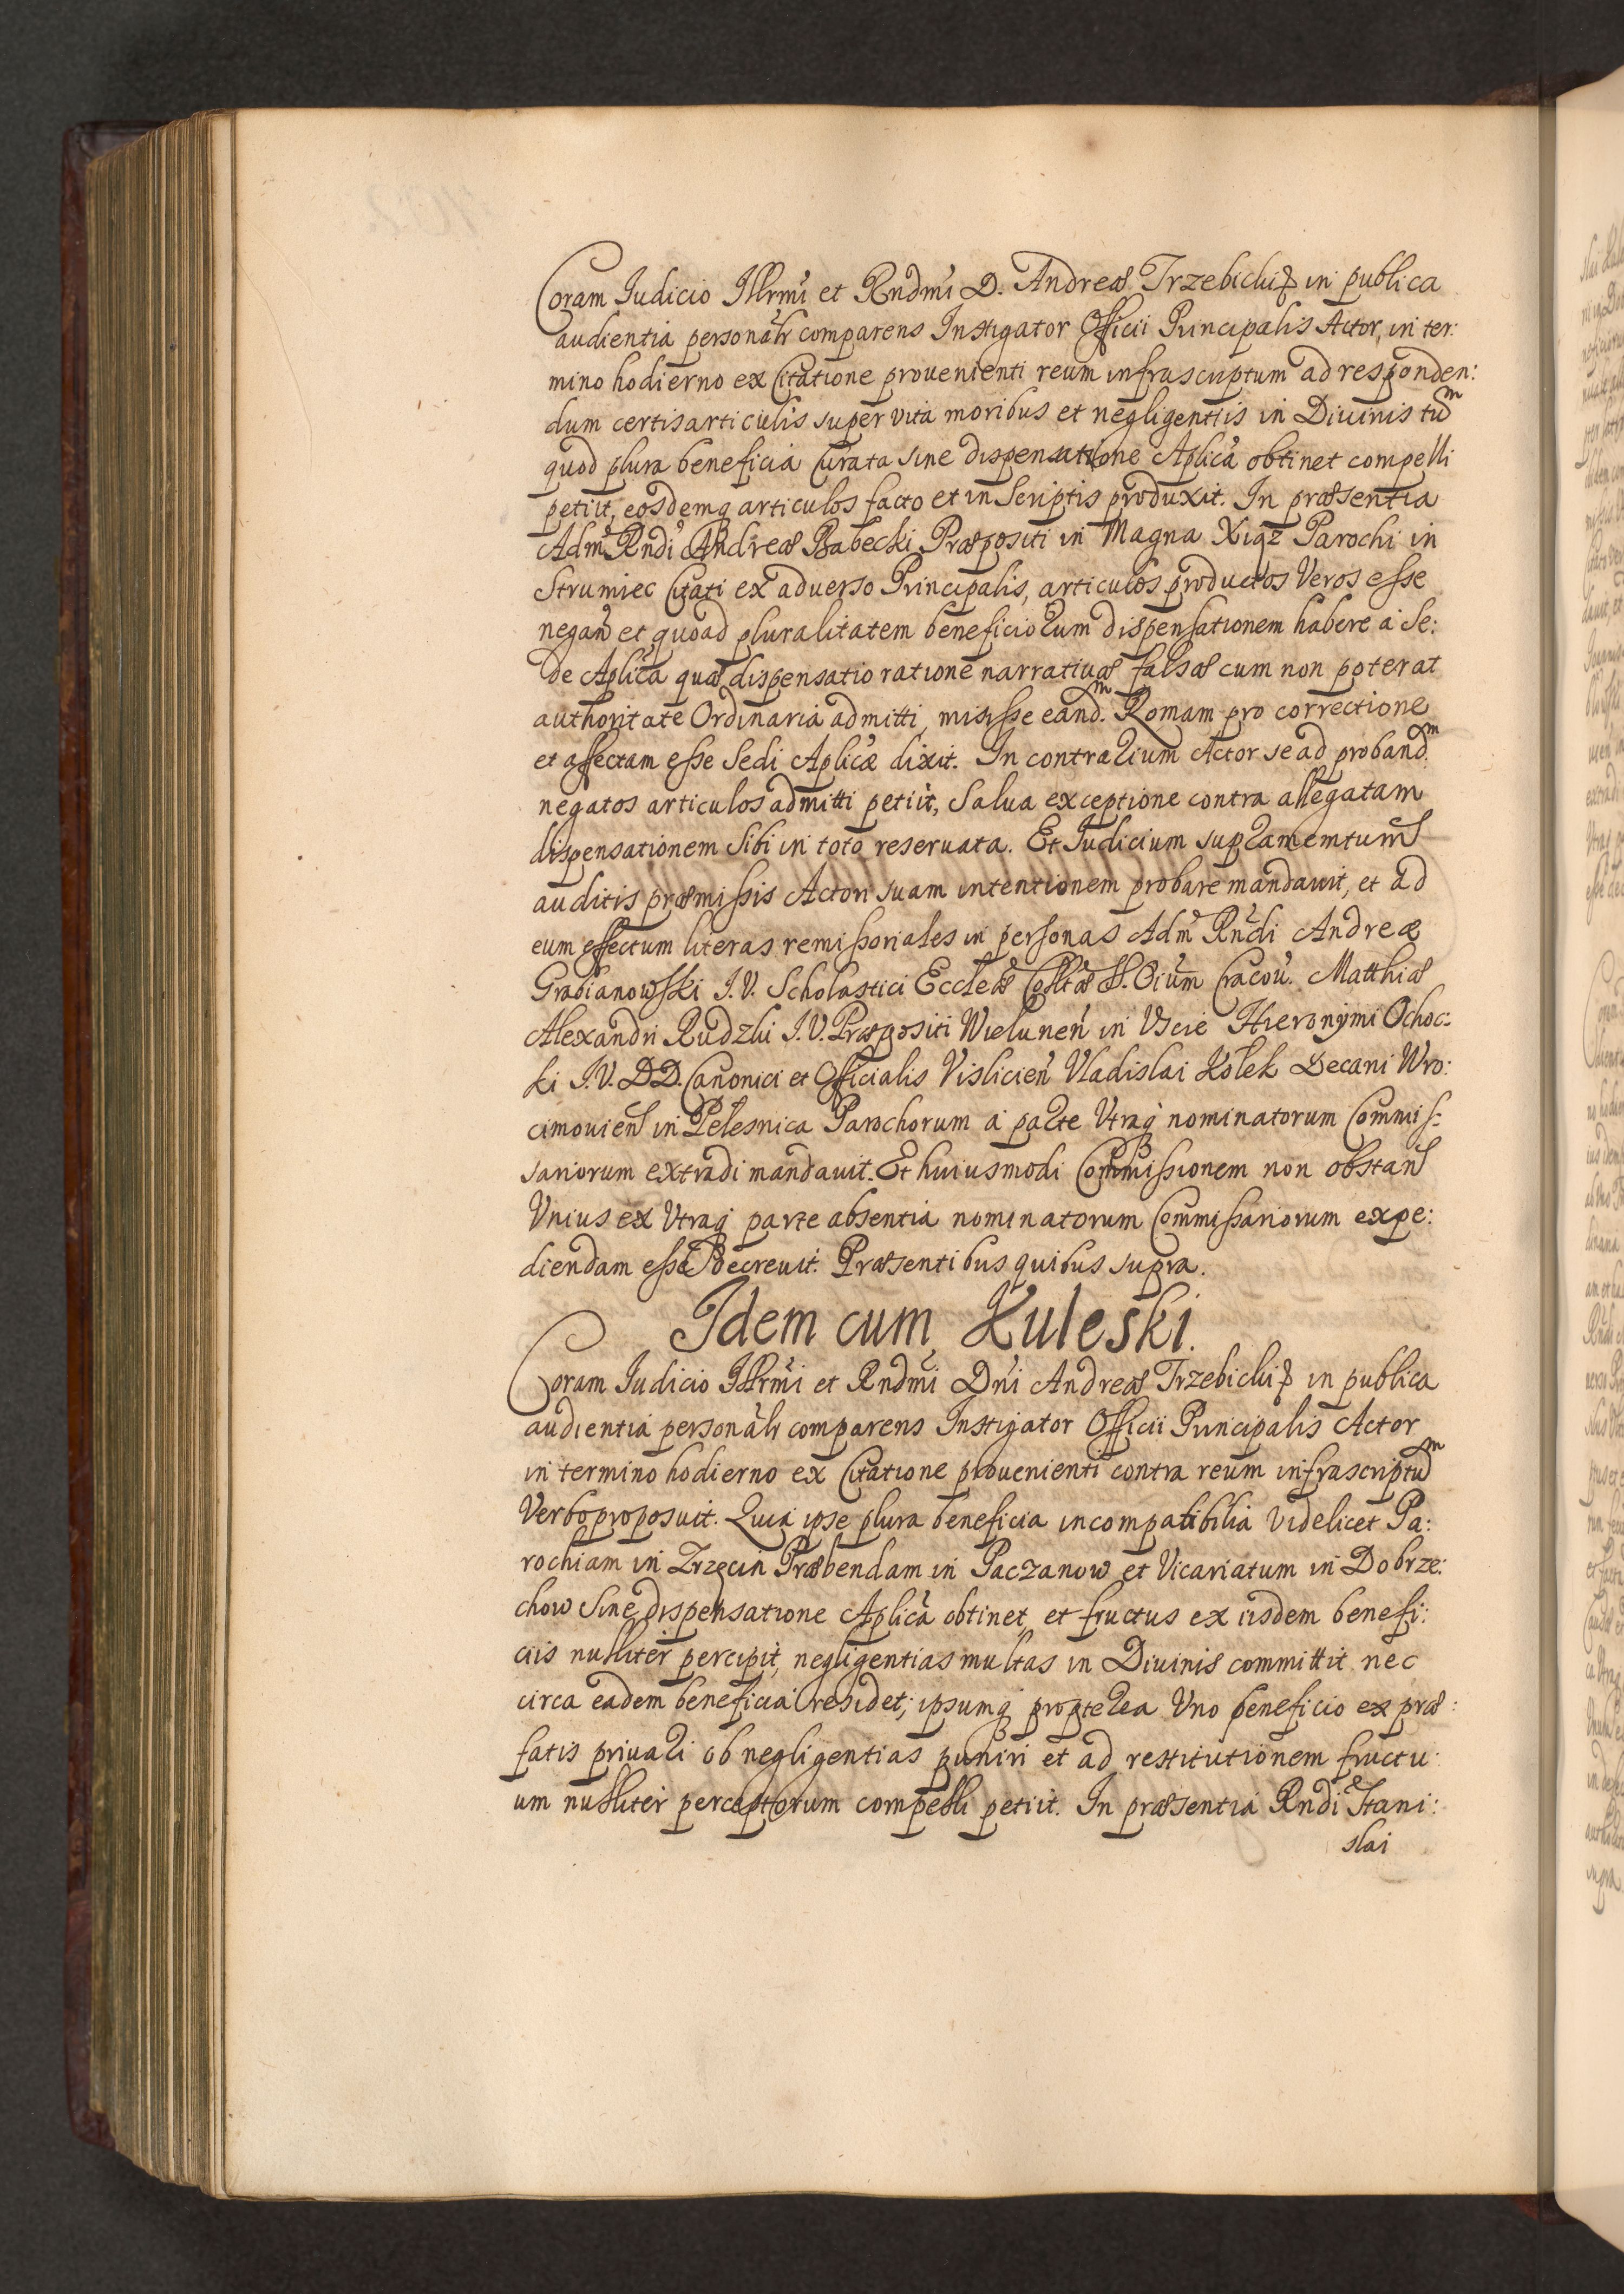 Coram Iudicio Illrmi et Rndmi D. Andreæ Trzebicki in publica
audientia personalr comparens Instigator Officii Principalis Actor, in ter:
mino hodierno ex Citatione provenienti reum infrascriptum ad responden:
dum certis articulis super vita moribus et negligentiis in Divinis tum
quod plura beneficia Curata sine dispensatione Aplica obtinet compelli
petiit, eosdemq articulos facto et in Scriptis produxit. In præsentia
Adm Rndi Andreæ Babecki Præpositi in Magna Xiąz Parochi in
Strumiec Citati ex adverso Principalis, articulos productos Veros esse
negan et quoad pluralitatem beneficiorum dispensationem habere à Se:
de Aplica quæ dispensatio ratione narrativæ falsæ cum non poterat
authoritate Ordinaria admitti, misisse eandm. Romam pro correctione
et affectam esse Sedi Aplicæ dixit. In contrarium Actor se ad probandm.
negatos articulos admitti petiit, Salva exceptione contra allegatam
dispensationem Sibi in toto reservata. Et Iudicium
auditis præmissis Actori suam intentionem probare mandavit, et ad
eum effectum literas remissoriales in personas Adm Rndi Andreæ
Grabianowski I.V. Scholastici Eccleæ Colltæ SS. Oium Cracov. Matthiæ
Alexandri Rudzki I.V. Præpositi Wielunen in Vscie Hieronymi Ochoc:
ki I.V. DD. Canonici et Officialis Vislicien Vladislai Kołek Decani Wro:
cimovien in Pelesnica Parochorum à parte Vtraq nominatorum Commis:
sariorum extradi mandavit. Et huiusmodi Commissionem non obstan
Vnius ex Vtraq parte absentia nominatorum Commissariorum expe:
diendam esse decrevit. Præsentibus quibus supra.
Idem cum Kuleski.
Coram Iudicio Illrmi et Rndmi Dni Andreæ Trzebicki in publica
audientia personalr comparens Instigator Officii Principalis Actor
in termino hodierno ex Citatione provenienti contra reum infrascriptum
Verbo proposuit. Quia ipse plura beneficia incompatibilia Videlicet Pa:
rochiam in Zrzęcin Præbendam in Paczanow et Vicariatum in Dobrze:
chow Sine dispensatione Aplica obtinet, et fructus ex iisdem benefi:
ciis nulliter percipit, negligentias multas in Divinis committit nec
circa eadem beneficia residet; ipsumq propterea Vno beneficio ex præ:
fatis privari ob negligentias puniri et ad restitutionem fructu:
um nulliter perceptorum compelli petiit. In præsentia Rndi Stani:
slai